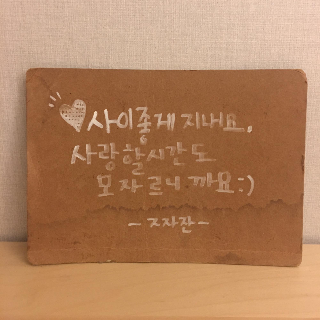 사이좋게 지내요.
사랑할시간도
모자르니까요:)
-ㅈ자잔-